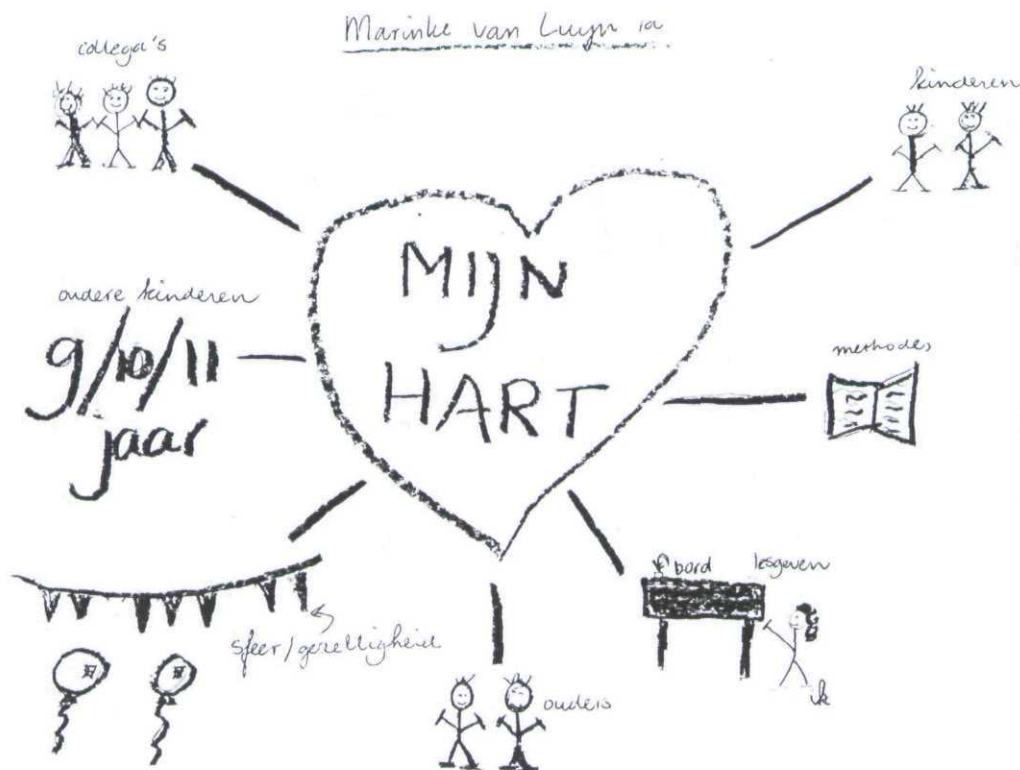 Marinke van Luyn 1a
collega's
kinderen
MIJN
HART
oudere kinderen
9/10/11
jaar
methodes
bord
lesgeven
ik
sfeer/gezelligheid
ouders